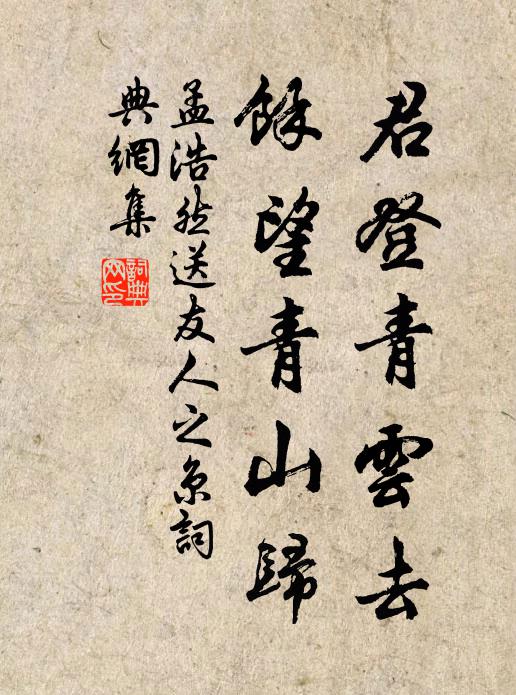 君登青雲去
餘望青山歸
孟浩然送友人之京詞
典網集
詞典網印